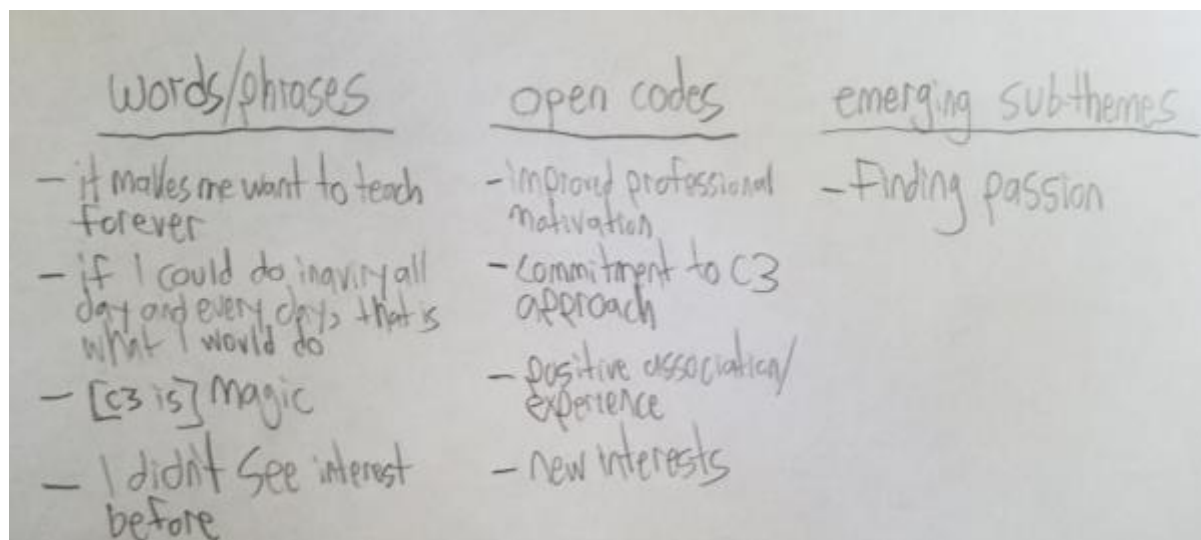 words/phrases
- it makes me want to teach
forever
- if I could do inquiry all
day and every day, that is
what I would do
- [c3 is] magic
- I didn't see interest
before
open codes
- improved professional
motivation
- commitment to C3
approach
- positive association/
experience
- new interests
emerging subthemes
- Finding passion